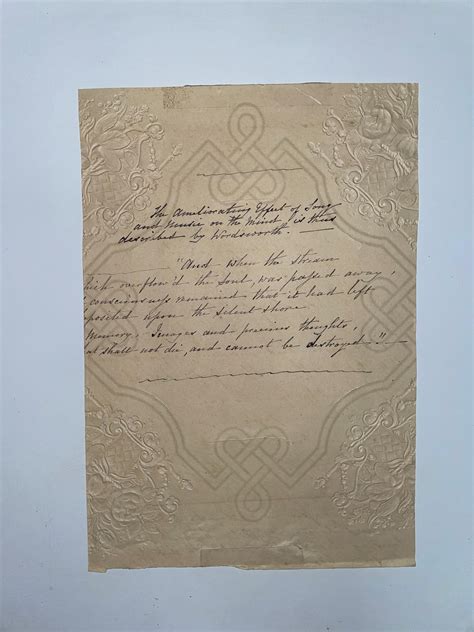 The Ameliorating Effect of Song
and Music on the Mind is thus
described by Wordsworth. —
"And when the stream
hich overflow'd the Soul, was passed away,
consciousness remained that it had left
posited upon the silent shore
Memory, Images and precious thoughts,
at shall not die, and cannot be destroyed."